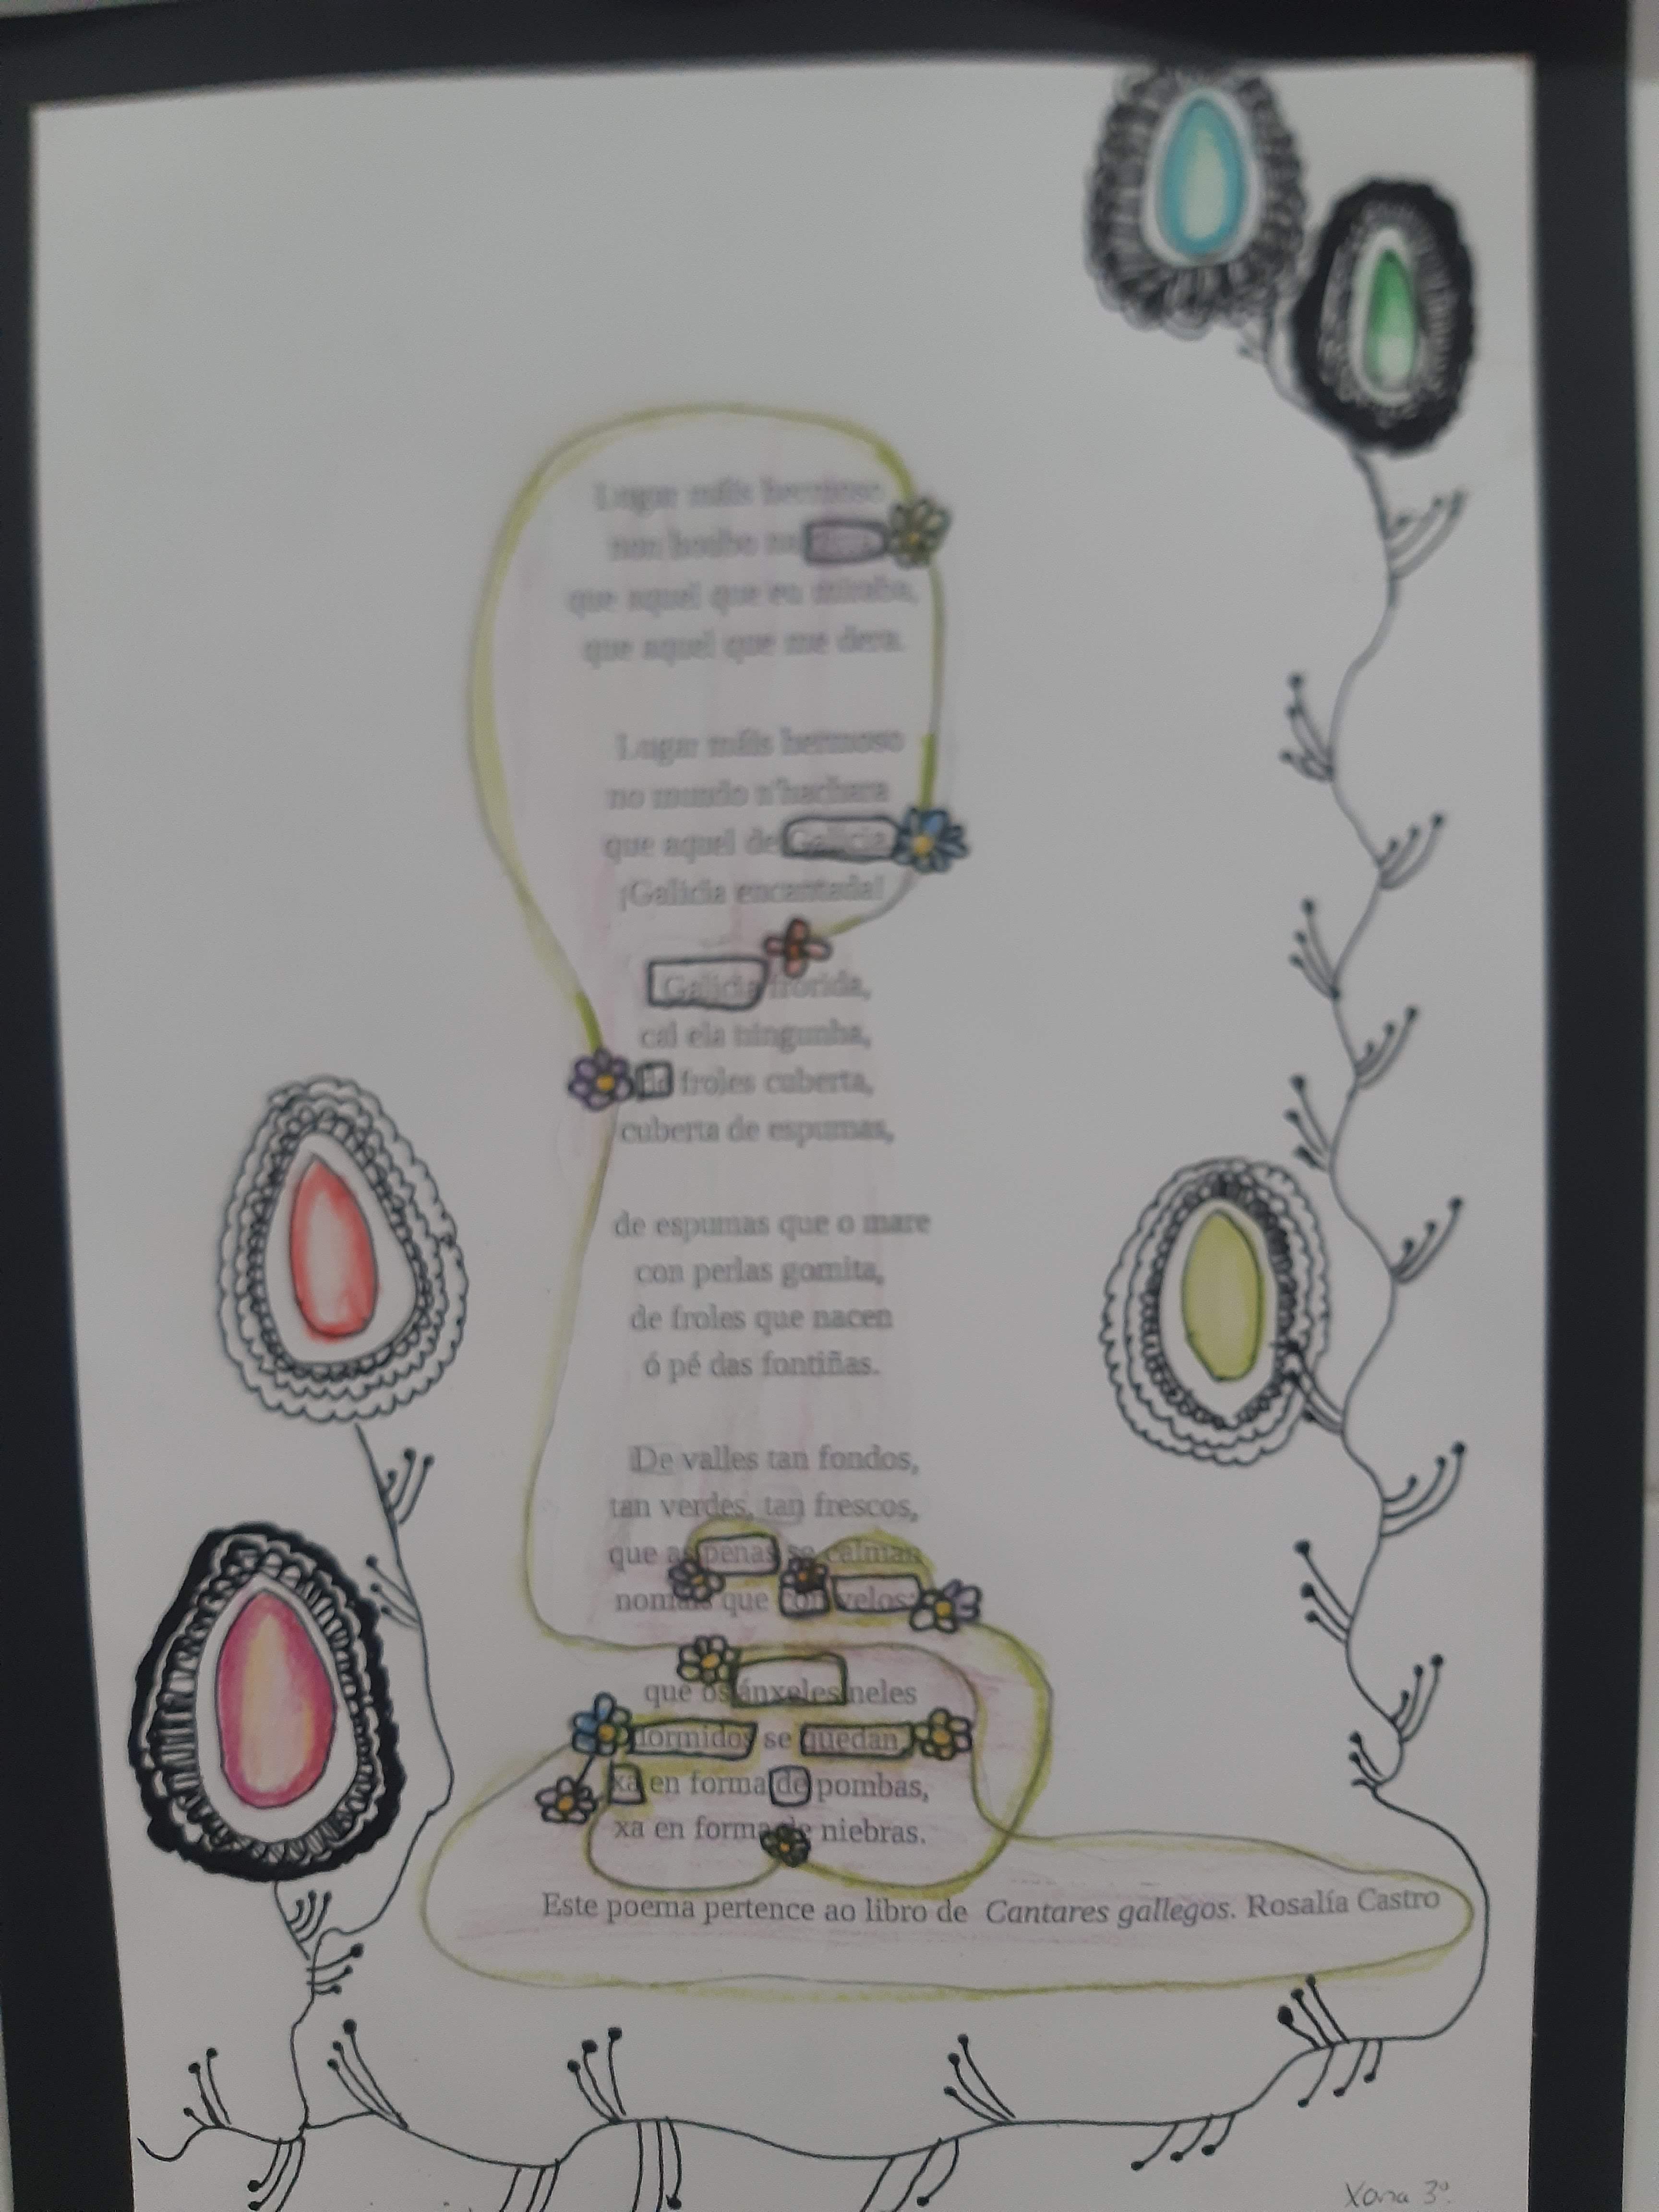 Lugar máis hermoso
non houbo na terra
que aquel que eu miraba,
que aquel que me dera.
Lugar máis hermoso
no mundo n'hachara
que aquel de Galicia
¡Galicia encantada!
Galicia frorida,
cal ela ningunha,
de froles cuberta,
cuberta de espumas,
de espumas que o mare
con perlas gomita,
de froles que nacen
ó pé das fontiñas.
De valles tan fondos,
tan verdes, tan frescos,
que as penas se calman
nomais que con velos;
que os ánxeles neles
dormidos se quedan,
xa en forma de pombas,
xa en forma de niebras.
Este poema pertence ao libro de Cantares gallegos. Rosalía Castro
Xana 3º